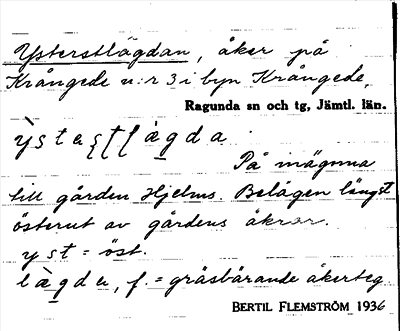 Ysterstlägdan, åker på
Krångede n:r 3 i byn Krångede,
Ragunda sn och tg, Jämtl. län.
På inägorna
till gården Hjelms. Belägen längst
österut av gårdens åkrar.
yst = öst.
lægda, f. = gräsbärande åkerteg.
BERTIL FLEMSTRÖM 1936